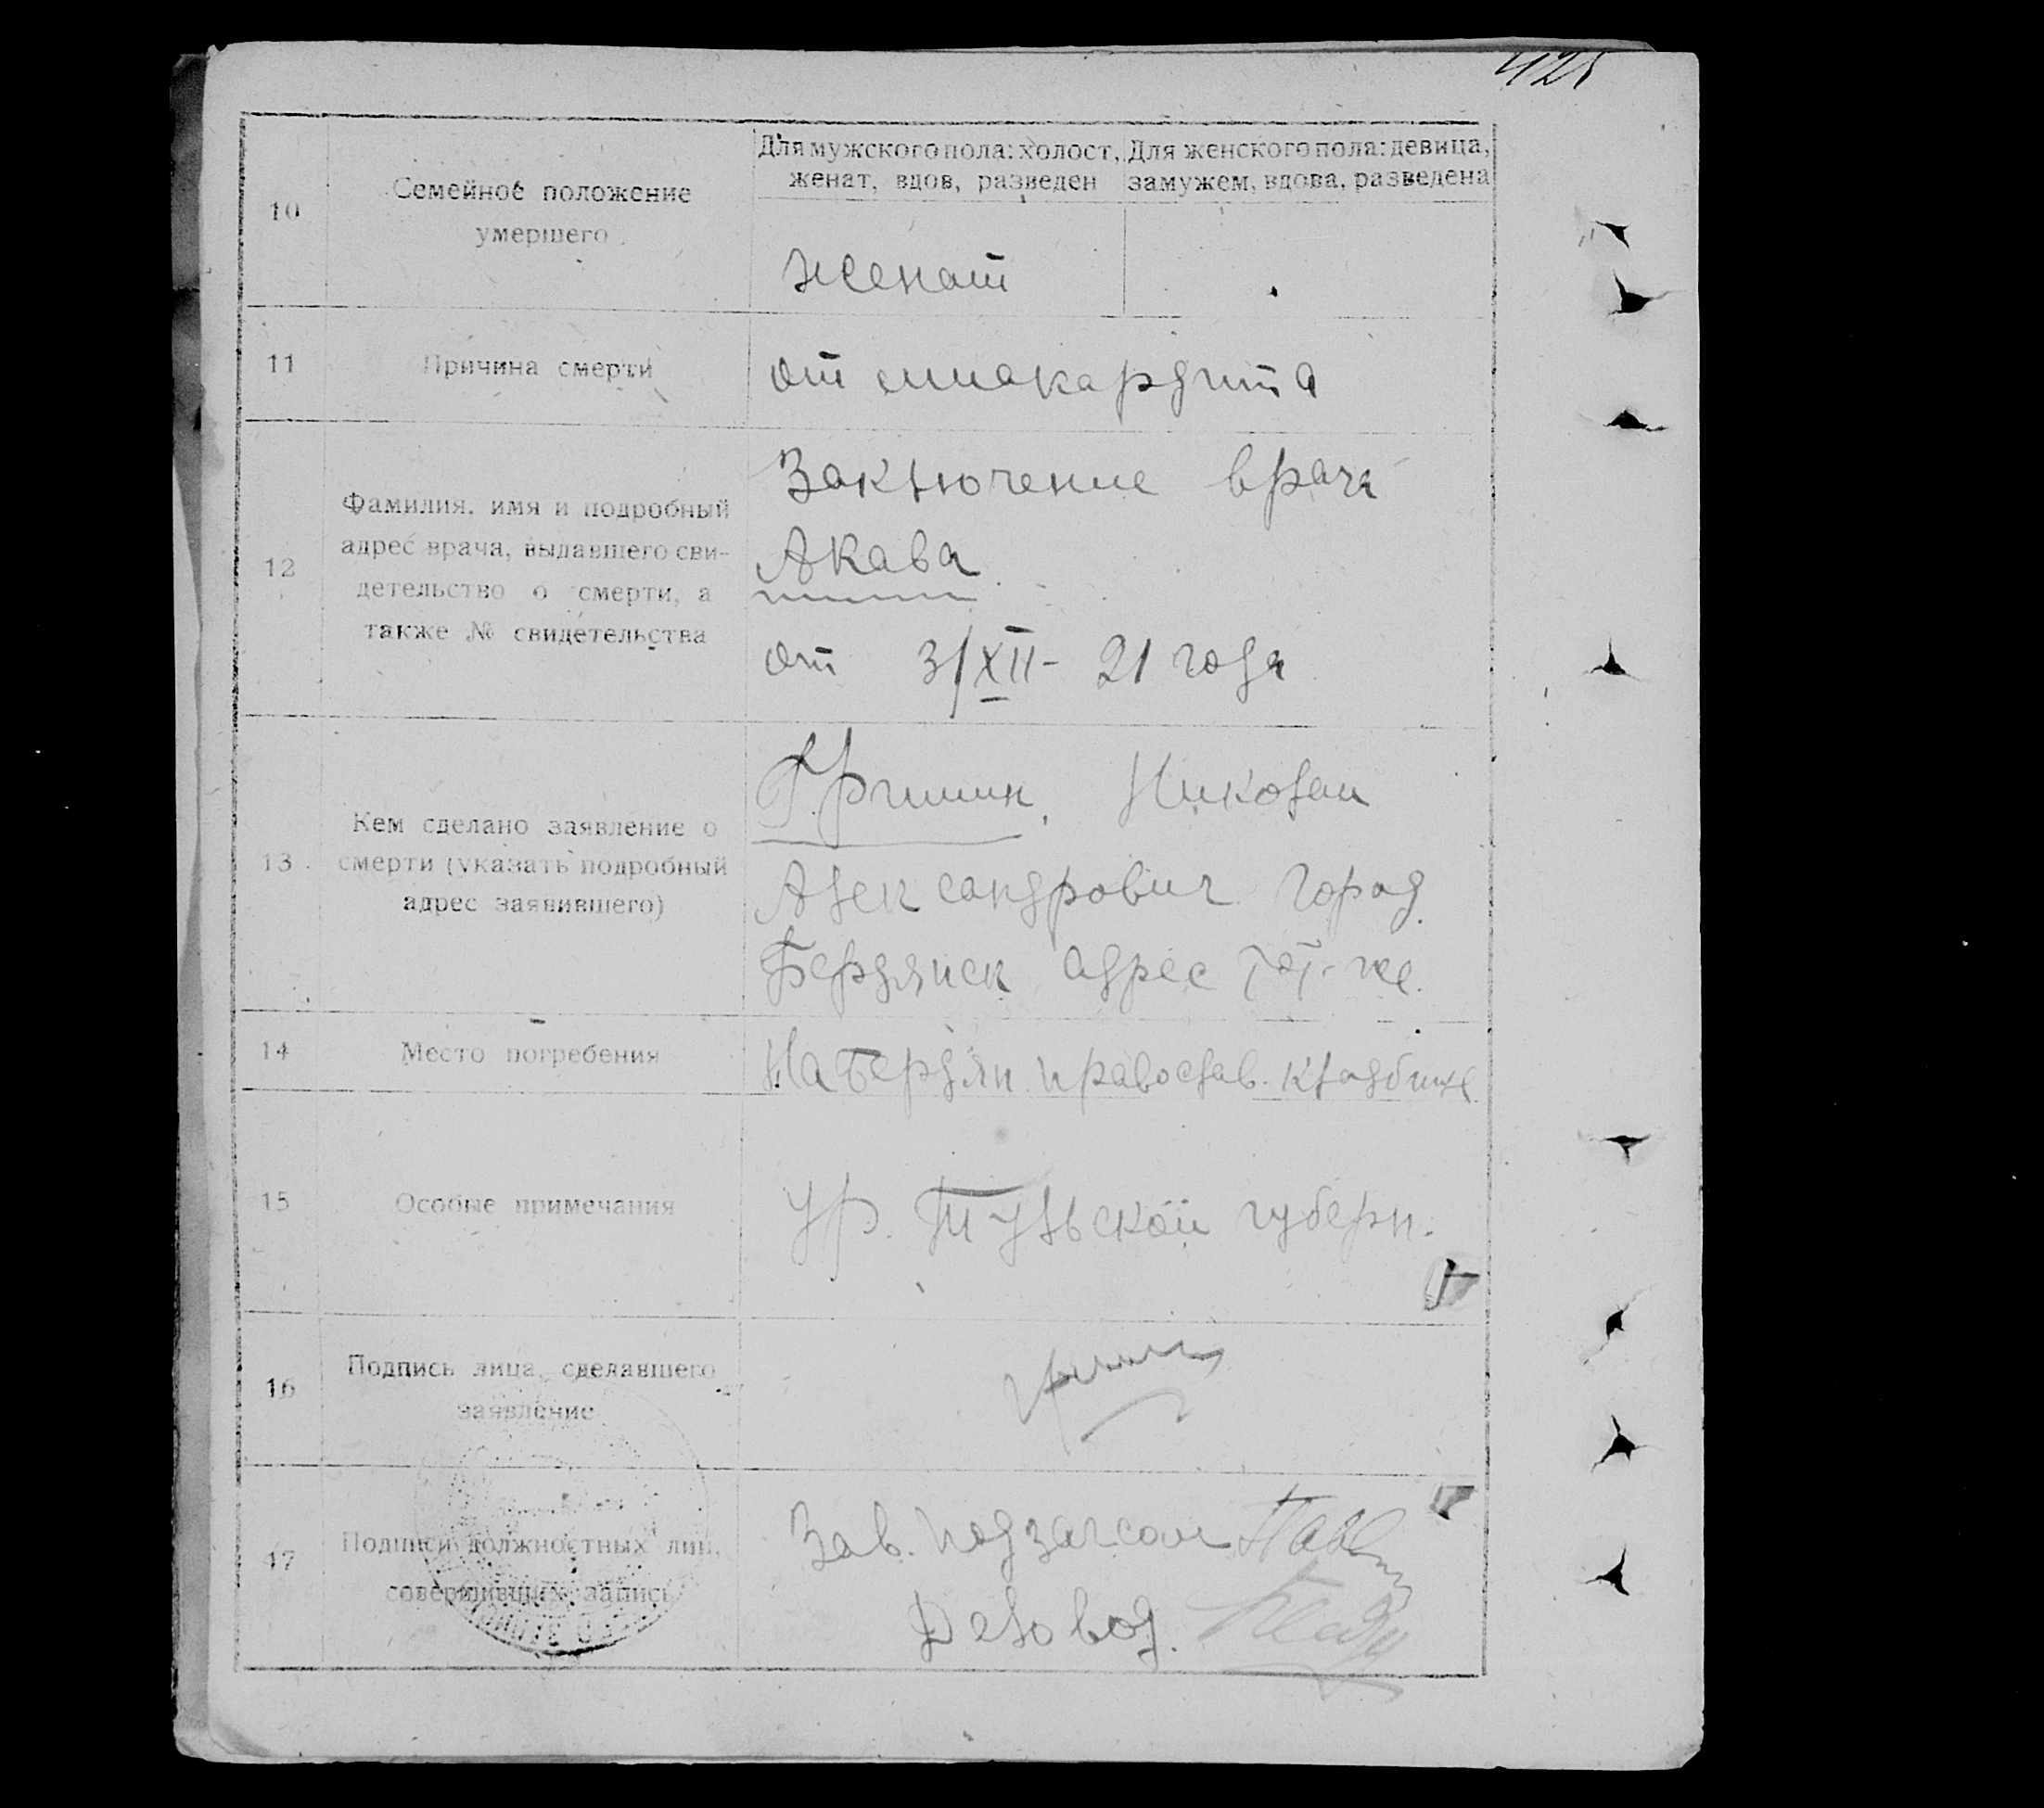 425
10
Семейное положение
умершего
Для мужского пола: холост,
женат, вдов, разведен
Для женского пола: девица,
замужем, вдова, разведена
женат
11
Причина смерти
от миокардита
12
Фамилия, имя и подробный
адрес врача, выдавшего сви-
детельство о смерти, а
также № свидетельства
Заключение врача
Акава
от 3/XII - 21 года
13
Кем сделано заявление о
смерти (указать подробный
адрес заявившего)
Николай
Александрович город
Бердянск адрес тот-же
14
Место погребения
На Бердян. православ. кладбище
15
Особые примечания
ур. Тульской губерн.
16
Подпись лица, сделавшего
заявление
17
Подписи должностных лиц,
совершивших запись
Зав. подзагсом
Деловод.